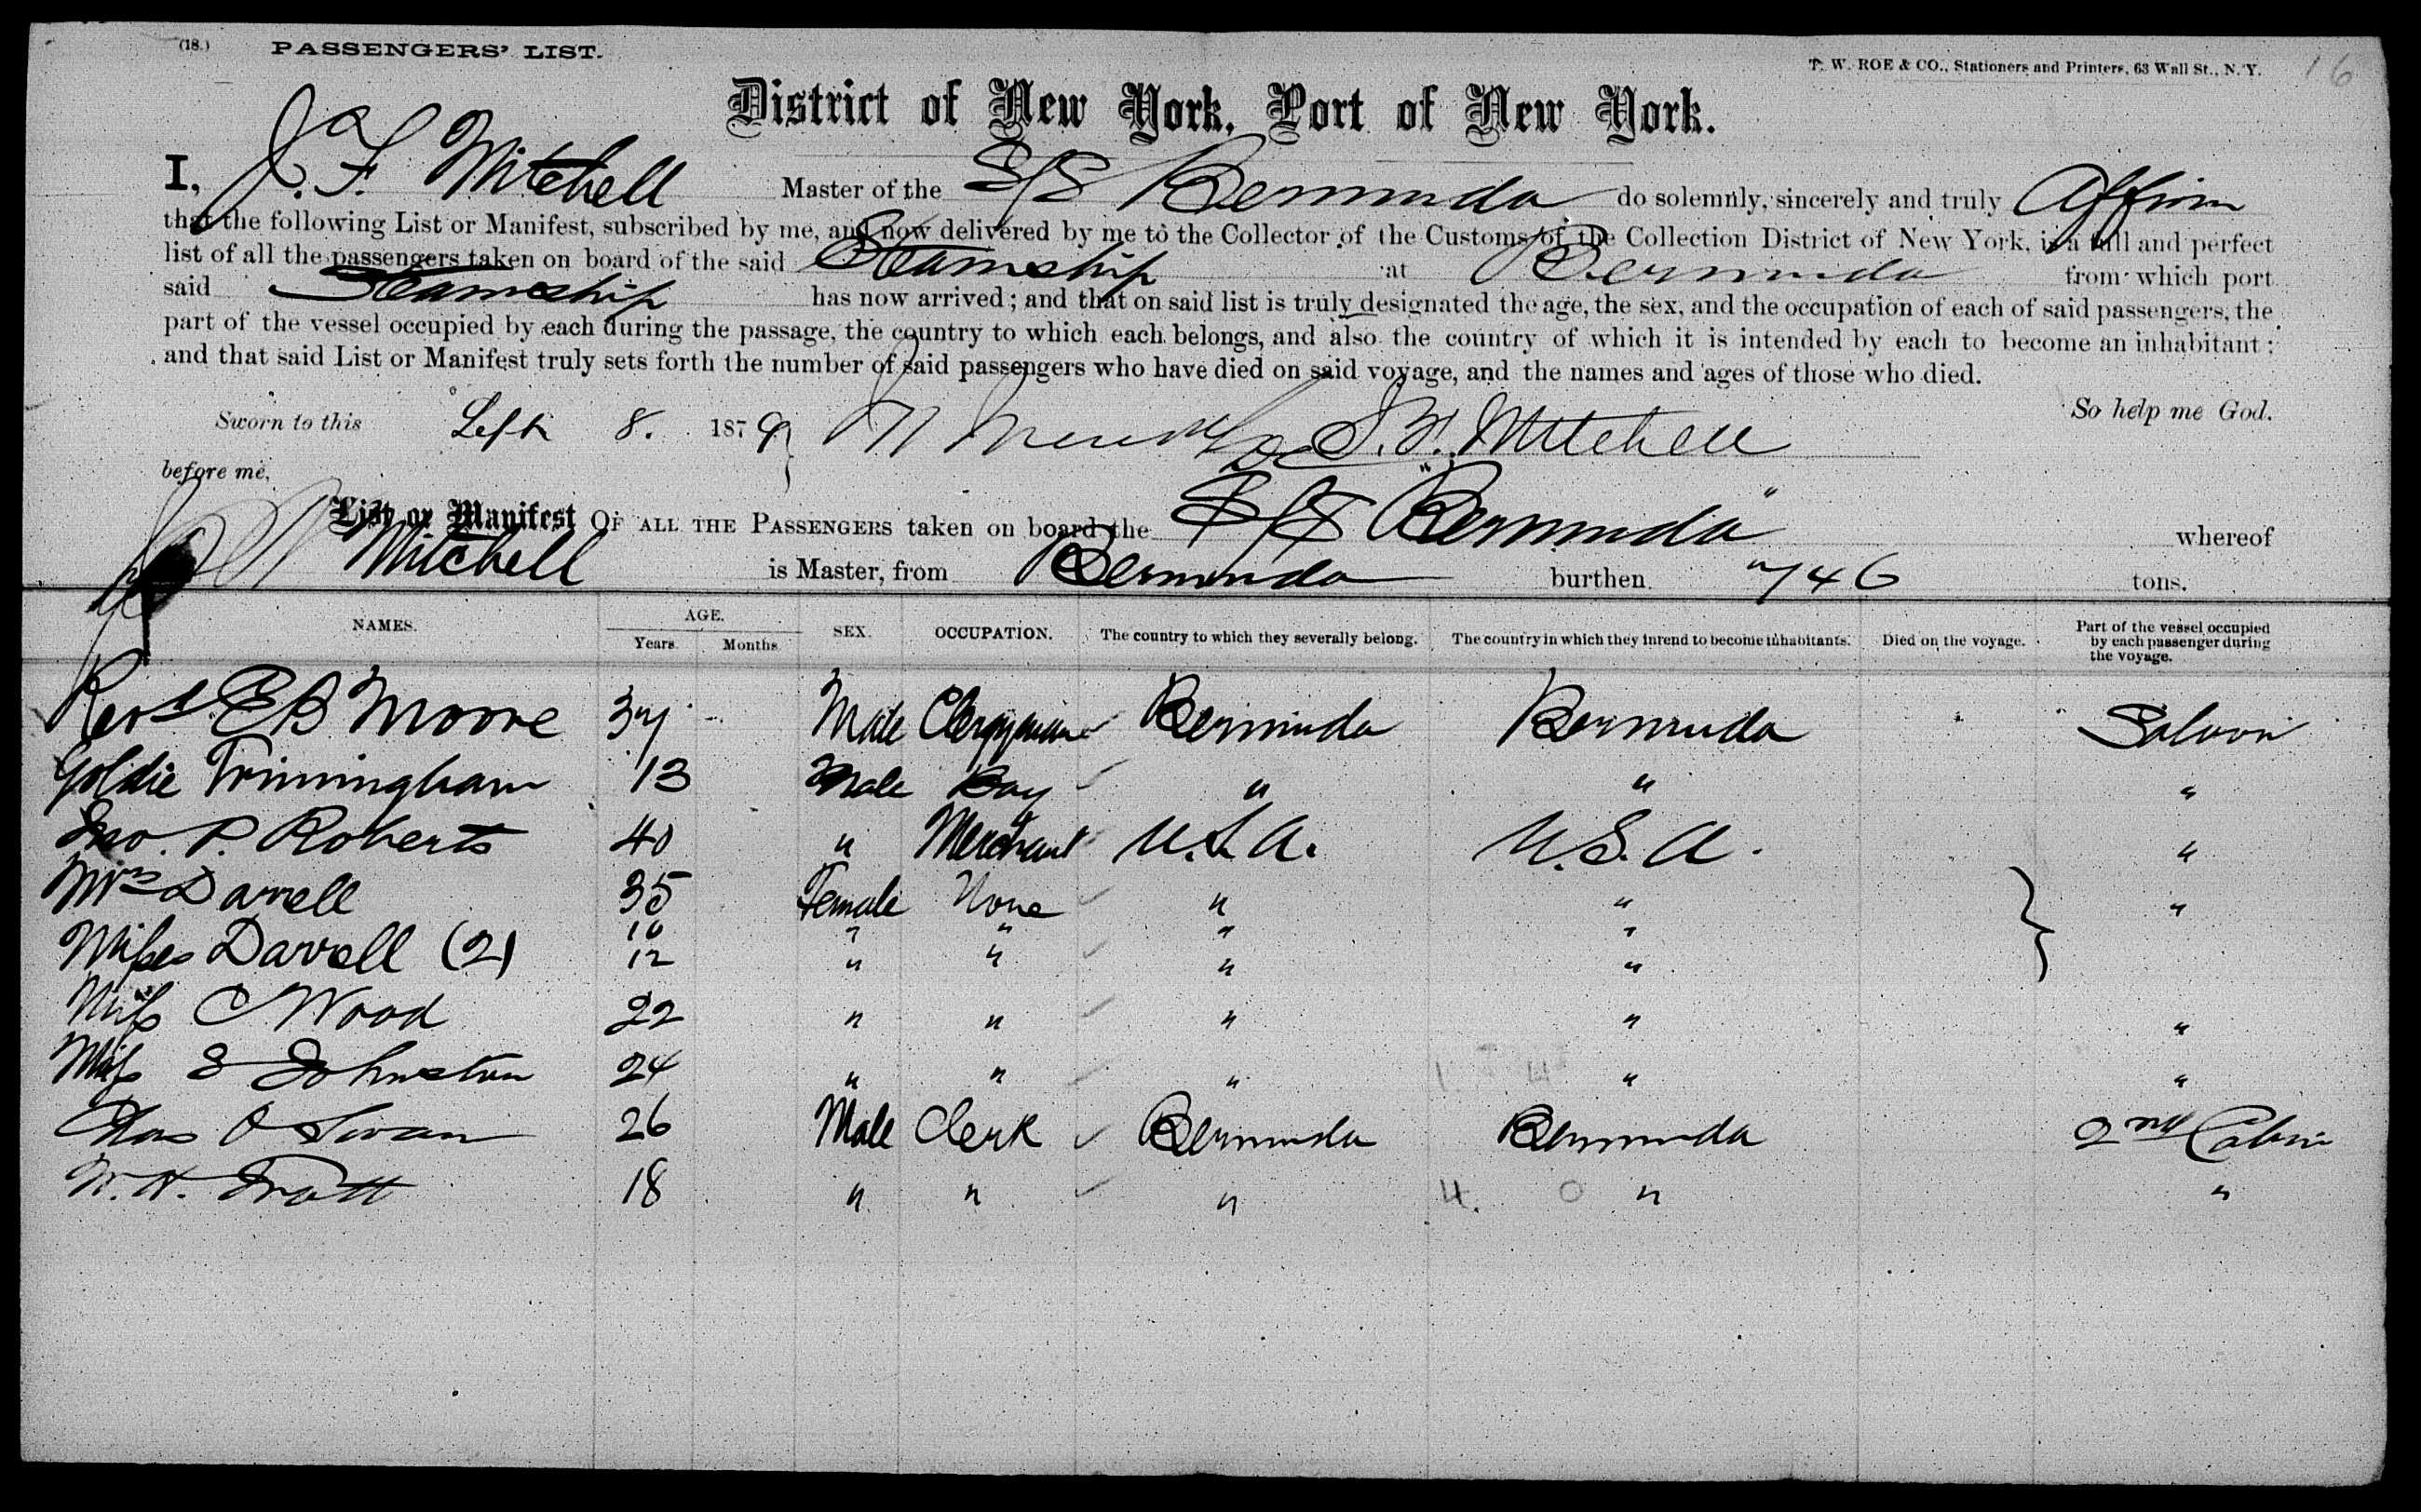 (18.) PASSENGERS' LIST.
T. W. ROE & CO., Stationers and Printers, 63 Wall St., N. Y. 16
District of New York, Port of New York.
I, J. F. Mitchell Master of the S/S Bermuda do solemnly, sincerely and truly Affirm
that the following List or Manifest, subscribed by me, and now delivered by me to the Collector of the Customs of the Collection District of New York, is a full and perfect
list of all the passengers taken on board of the said Steamship at Bermuda from which port
said Steamship has now arrived; and that on said list is truly designated the age, the sex, and the occupation of each of said passengers, the
part of the vessel occupied by each during the passage, the country to which each belongs, and also the country of which it is intended by each to become an inhabitant;
and that said List or Manifest truly sets forth the number of said passengers who have died on said voyage, and the names and ages of those who died.
So help me God.
Sworn to this Sept 8. 1879 Mitchell
before me,
List or Manifest OF ALL THE PASSENGERS taken on board the S/S "Bermuda" whereof
Mitchell is Master, from Bermuda burthen 746 tons.
NAMES. AGE. Years. Months. SEX. OCCUPATION. The country to which they severally belong. The country in which they intend to become inhabitants. Died on the voyage. Part of the vessel occupied by each passenger during the voyage.
Revd. E B Moore 37 Male Clergyman Bermuda Bermuda Saloon
Goldie Trimingham 13 Male Boy " " "
Jno. P. Roberts 40 " Merchant U.S.A. U.S.A. "
Mrs Darrell 35 Female None " " "
Misses Darrell (2) 10 " " " "
12 " " " "
Miss C Wood 22 " " " " "
Miss S Johnston 24 " " " " "
Chas A Swan 26 Male Clerk Bermuda Bermuda 2nd Cabin
W. H. Trott 18 " " " 4. 0 " "